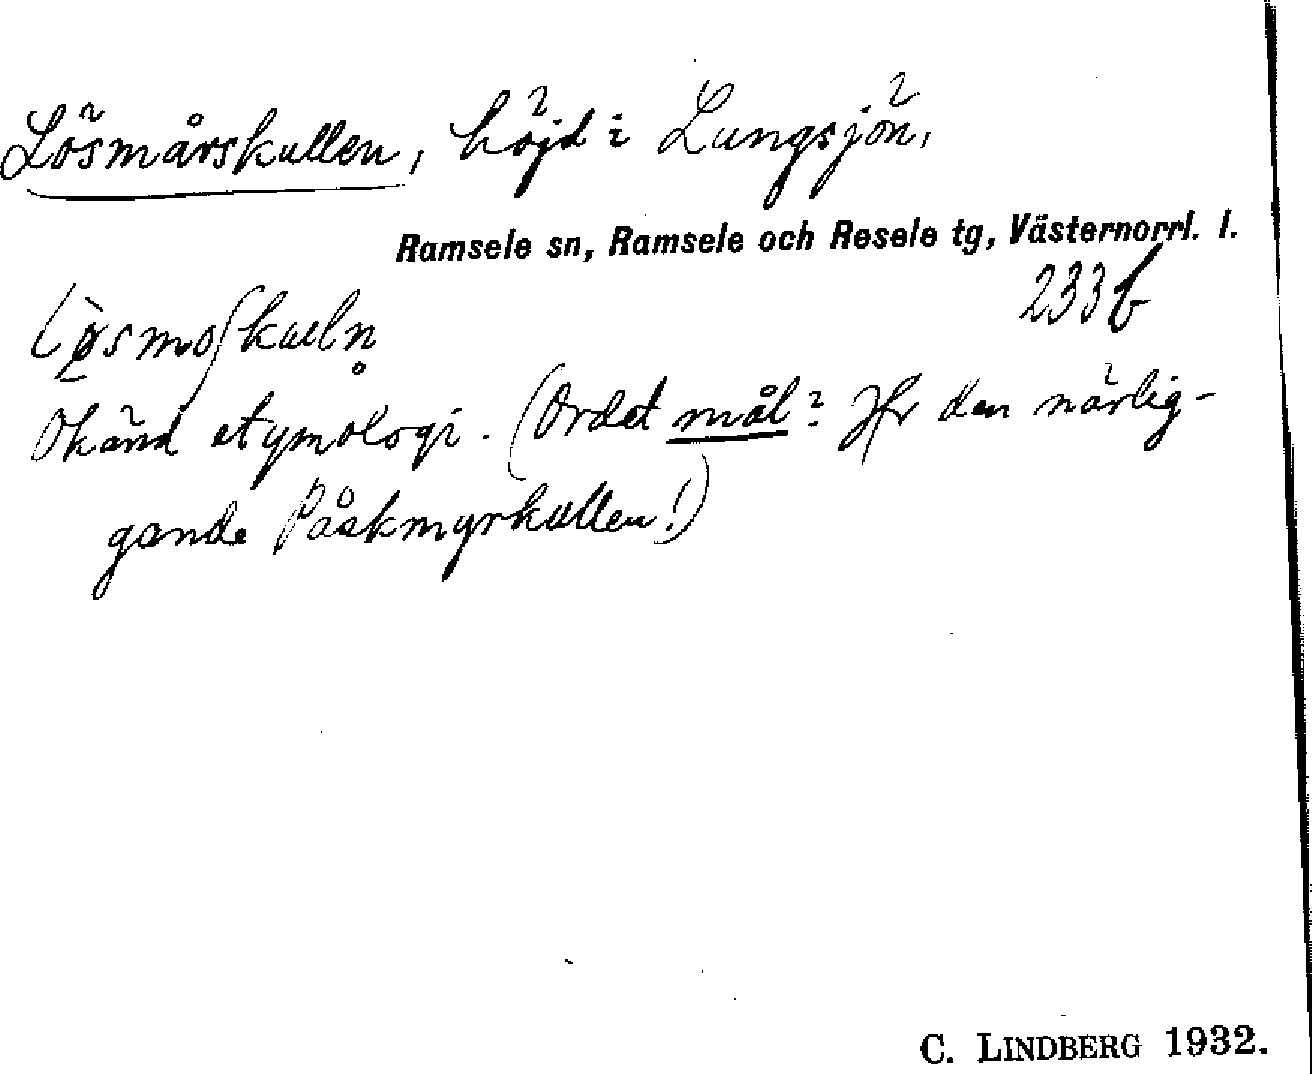 Lösmårskullen, höjd i Lungsjön,
Ramsele sn, Ramsele och Resele tg, Västernorrl. l.
233b
Løsmoʃkueln̥
Okänd etymologi. (Ordet mål? Jfr den närlig-
gande Påskmyrkullen!)
C. LINDBERG 1932.